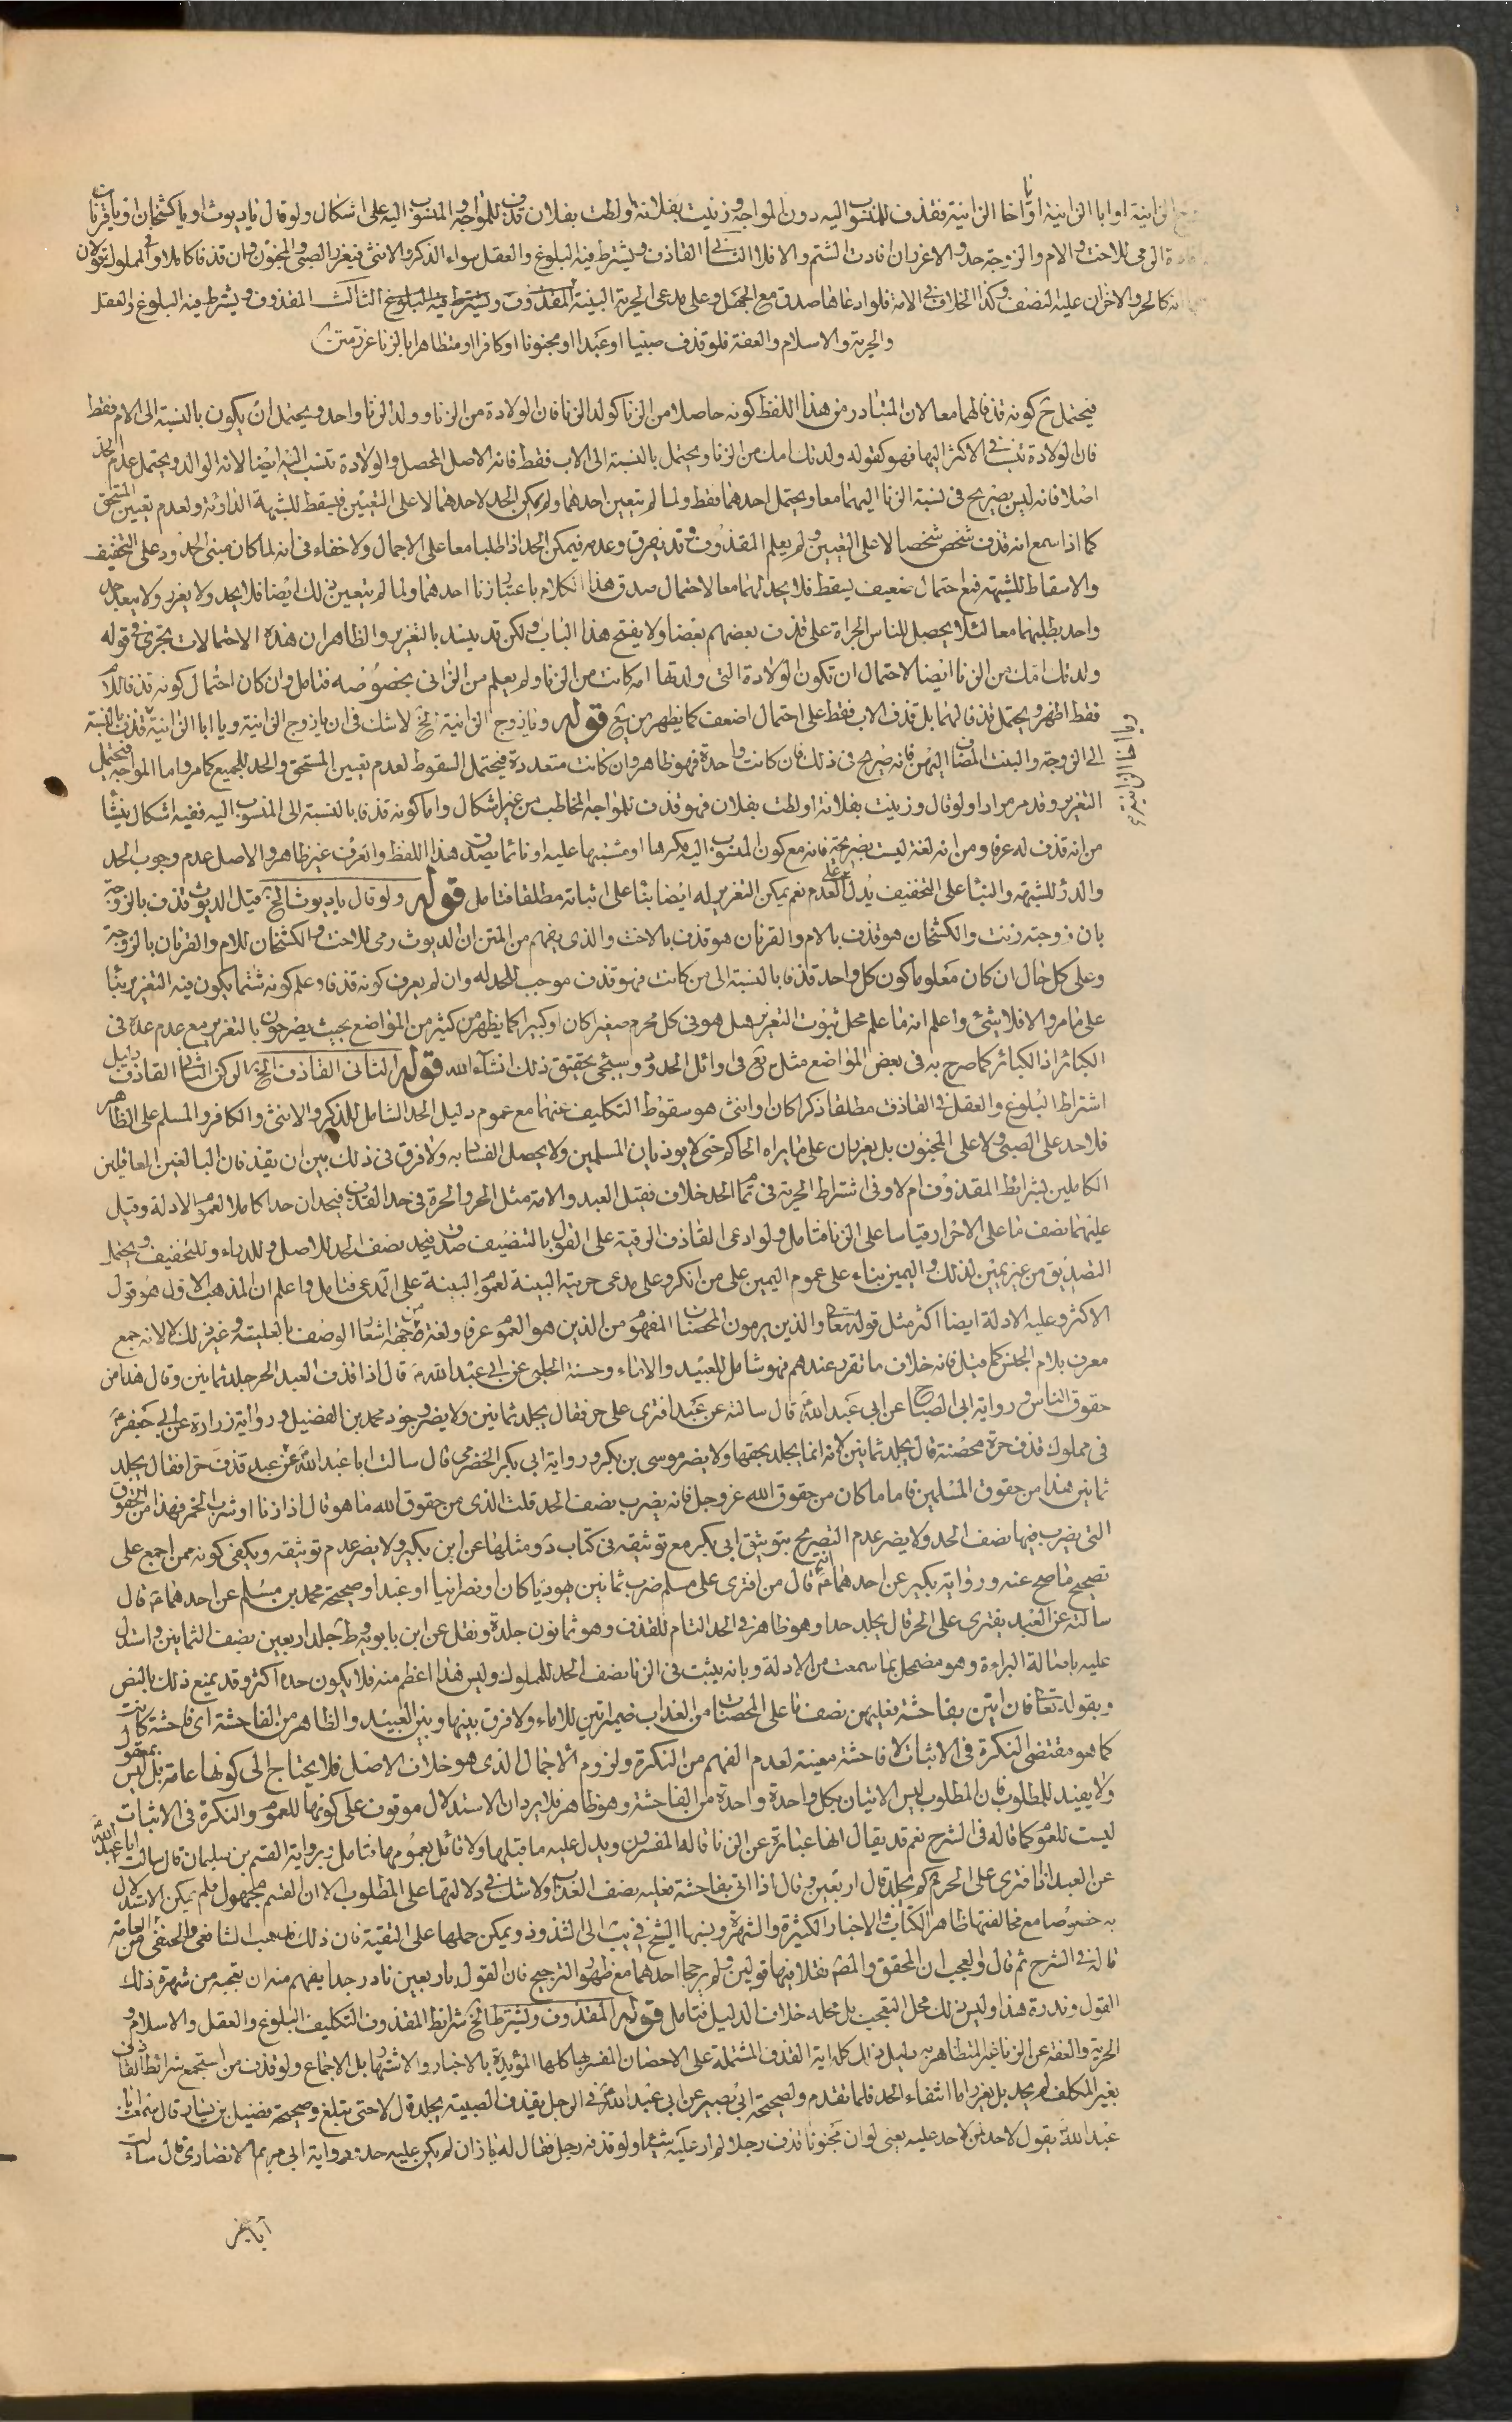 الزانية او ابا الزانية او يا اخا الزانية فقذف للمنسوب اليه دون المواجه و زنيت بفلانة او لطت بفلان قذف للمواجه و المنسوب اليه على اشكال ولو قال يا ديوث او يا كشخان او يا قرنان
الرمى للاخت و الام و الزوجة حد و الا عزر ان افادت الشتم و الا فلا الثانى القاذف و يشترط فيه البلوغ و العقل سواء الذكر و الانثى فيعزر الصبى و المجنون وان قذفا كاملا و فى المملوك قولان
كالحر و الاخر ان عليه النصف و كذا الخلاف فى الامة فلو ادعاها صدق مع الجهل و على مدعى الحرية البينة المقذوف و يشترط فيه البلوغ الثالث المقذوف و يشترط فيه البلوغ و العقل
والحرية و الاسلام و العفة فلو قذف صبيا او عبدا او مجنونا او كافرا او متظاهرا بالزنا عزر متن
فيحتمل ح كونه قذفا لهما معا لان المتبادر من هذا اللفظ كونه حاصلا من الزنا كولد الزنا فان الولادة من الزنا و ولد الزنا واحد و يحتمل ان يكون بالنسبة الى الام فقط
فان الولادة تنسب فى الاكثر اليها فهو كقوله ولدتك امك من الزنا و يحتمل بالنسبة الى الاب فقط فانه الاصل المحصل و الولادة تنسب اليه ايضا لانه الوالد و يحتمل عدم الحد
اصلا فانه ليس بصريح فى نسبة الزنا اليهما معا و يحتمل احدهما فقط ولما لم يتعين احدهما ولم يكن الحد لاحدهما لا على التعيين فيسقط للشبهة الدارئة ولعدم تعيين المستحق
كما اذا سمع انه قذف شخص شخصا لا على التعيين و لم يعلم المقذوف و قد يفرق وعدمه فيمكن الحد اذا طلبا معا على الاجمال ولا خفاء فى انه لما كان مبنى الحدود على التخفيف
والاسقاط للشبهة فمع احتمال ضعيف يسقط فلا يحد لهما معا لاحتمال صدق هذا الكلام باعتبار زنا احدهما ولما لم يتعين ذلك ايضا فلا يحد ولا يعزر ولا يبعد حد
واحد بطلبهما معا لئلا يحصل للناس الجراة على قذف بعضهم بعضا ولا يفتح هذا الباب ولكن قد يسد بالتعزير و الظاهر ان هذه الاحتمالات تجرى فى قوله
ولدتك امك من الزنا ايضا لاحتمال ان تكون الولادة التى ولدتها امه كانت من الزنا ولم يعلم من الزانى بخصوصه فتامل وان كان احتمال كونه قذفا للام
فقط اظهر و يحتمل قذفا لهما بل قذف الاب فقط على احتمال اضعف كما يظهر من يع قوله و يا زوج الزانية الخ لا شك فى ان يا زوج الزانية و يا ابا الزانية قذف بالنسبة
و يا اخا الزانية
الى الزوجة و البنت المضاف اليهن فانه صريح فى ذلك فان كانت واحدة فهو ظاهر وان كانت متعددة فيحتمل السقوط لعدم تعيين المستحق والحد للجميع كما مر و اما المواجه فيحتمل
التعزير وقد مر مرارا ولو قال و زنيت بفلانة او لطت بفلان فهو قذف للمواجه المخاطب من غير اشكال و اما كونه قذفا بالنسبة الى المنسوب اليه ففيه اشكال ينشأ
من انه قذف له عرفا و من انه لغة ليست بصريحة فانه مع كون المنسوب اليه مكرها او مشتبها عليه او نائما يصدق هذا اللفظ و العرف غير ظاهر و الاصل عدم وجوب الحد
والدرء للشبهة و البناء على التخفيف يدل على العدم نعم يمكن التعزير له ايضا بناء على اثباته مطلقا فتامل قوله ولو قال يا ديوث الخ قيل الديوث قذف بالزوجة
بان زوجته زنت و الكشخان هو قذف بالام و القرنان هو قذف بالاخت و الذى يفهم من المتن ان الديوث رمى للاخت و الكشخان للام و القرنان بالزوجة
وعلى كل حال ان كان معلوما كون كل واحد قذفا بالنسبة الى من كانت فهو قذف موجب للحد له وان لم يعرف كونه قذفا و علم كونه شتما يكون فيه التعزير بناء
على ما مر و الا فلا شئ و اعلم انه ما علم محل ثبوت التعزير هل هو فى كل محرم صغيرا كان او كبيرا كما يظهر من كثير من المواضع بحيث يصرحون بالتعزير مع عدم عده فى
الكبائر اذ الكبائر كما صرح به فى بعض المواضع مثل يع فى اوائل الحدود و سيجئ تحقيق ذلك انشاء الله قوله الثانى القاذف الخ الركن الثانى القاذف دليل
اشتراط البلوغ و العقل فى القاذف مطلقا ذكرا كان او انثى هو سقوط التكليف عنهما مع عموم دليل الحد الشامل للذكر و الانثى و الكافر و المسلم على الظاهر
فلا حد على الصبى ولا على المجنون بل يعزران على ما يراه الحاكم حتى لا يوذيان المسلمين ولا يحصل الفساد به ولا فرق فى ذلك بين ان يقذفان البالغين العاقلين
الكاملين بشرائط المقذوف ام لا و فى اشتراط الحرية فى تمام الحد خلاف فقيل العبد و الامة مثل الحر و الحرة فى حد القذف فيحدان حدا كاملا لعموم الادلة و قيل
عليهما نصف ما على الاحرار قياسا على الزنا فتامل ولو ادعى القاذف الرقية على القول بالتنصيف صدق فيحد نصف الحد للاصل و للدرء و للتخفيف و يحتمل
التصديق من غير يمين لذلك و اليمين بناء على عموم اليمين على من انكر و على مدعى حريته البينة لعموم البينة على المدعى فتامل و اعلم ان المذهب الاول هو قول
الاكثر و عليه الادلة ايضا اكثر مثل قوله تعالى و الذين يرمون المحصنات المفهوم من الذين هو العموم عرفا و لغة من جهة اشعار الوصف بالعلية و غير ذلك لا لانه جمع
معرف بلام الجنس كما قيل فانه خلاف ما تقرر عندهم فهو شامل للعبيد و الاماء و حسنة الحلبى عن ابى عبد الله ع قال اذا قذف العبد الحر جلد ثمانين و قال هذا من
حقوق الناس و رواية ابى الصباح عن ابى عبد الله ع قال سالته عن عبد افترى على حر فقال يجلد ثمانين ولا يضر وجود محمد بن الفضيل و رواية زرارة عن ابى جعفر ع
فى مملوك قذف حرة محصنة قال يجلد ثمانين لانه انما يجلد بحقها ولا يضر موسى بن بكر و رواية ابى بكر الحضرمى قال سالت ابا عبد الله ع عن عبد قذف حرا فقال يجلد
ثمانين هذا من حقوق المسلمين فاما ما كان من حقوق الله عز وجل فانه يضرب نصف الحد قلت الذى من حقوق الله ما هو قال اذا زنا او شرب الخمر فهذا من الحقوق
التى يضرب فيها نصف الحد ولا يضر عدم التصريح بتوثيق ابى بكر مع توثيقه فى كتاب د و مثلها عن ابن بكير ولا يضر عدم توثيقه و يكفى كونه ممن اجمع على
تصحيح ما صح عنه و رواية بكير عن احدهما ع انه قال من افترى على مسلم ضرب ثمانين يهوديا كان او نصرانيا او عبدا و صحيحة محمد بن مسلم عن احدهما ع قال
سالته عن العبد يفترى على الحر قال يجلد حدا و هو ظاهر فى الحد التام للقذف و هو ثمانون جلدة و نقل عن ابن بابويه و ط جلد اربعين نصف الثمانين و استدل
عليه باصالة البراءة و هو مضمحل بما سمعت من الادلة و بانه يثبت فى الزنا نصف الحد للمملوك و ليس هذا اعظم منه فلا يكون حده اكثر و قد يمنع ذلك بالنص
و بقوله تعالى فان اتين بفاحشة فعليهن نصف ما على المحصنات من العذاب ضمير اتين للاماء ولا فرق بينها و بين العبيد و الظاهر من الفاحشة اى فاحشة كانت
كما هو مقتضى النكرة فى الاثبات لا فاحشة معينة لعدم الفهم من النكرة و لزوم الاجمال الذى هو خلاف الاصل فلا يحتاج الى كونها عامة بل ليس بمعقول
ولا يفيد للمطلوب فان المطلوب ليس الاتيان بكل واحدة واحدة من الفاحشة و هو ظاهر فلا يرد ان الاستدلال موقوف على كونها للعموم و النكرة فى الاثبات
ليست للعموم كما قاله فى الشرح نعم قد يقال انها عبارة عن الزنا قاله المفسرون و يدل عليه ما قبلها ولا قائل بعمومها فتامل و برواية القسم بن سليمان قال سالت ابا عبد الله ع
عن العبد اذا افترى على الحر كم يجلد قال اربعين و قال اذا اتى بفاحشة فعليه نصف العذاب ولا شك فى دلالتها على المطلوب الا ان القسم مجهول فلم يمكن الاستدلال
به خصوصا مع مخالفتها ظاهر الكتاب و الاخبار الكثيرة و الشهرة و نسبها الشيخ فى يب الى الشذوذ و يمكن حملها على التقية فان ذلك مذهب الشافعى و الحنفى من العامة
قاله فى الشرح ثم قال و العجب ان المحقق و المصـ نقلا فيها قولين و لم يرجحا احدهما مع ظهور الترجيح فان القول باربعين نادر جدا يفهم منه ان تعجبه من شهرة ذلك
القول و ندرة هذا و ليس ذلك محل التعجب بل محله خلاف الدليل فتامل قوله المقذوف و يشترط الخ شرائط المقذوف التكليف البلوغ و العقل و الاسلام و
الحرية و العفة عن الزنا غير المتظاهر به دليل ذلك كله اية القذف المشتملة على الاحصان المفسر بها كلها المؤيدة بالاخبار و الاشتهار بل الاجماع ولو قذف من استجمع شرائط القاذف
بغير المكلف لم يحد بل يعزر اما انتفاء الحد فلما تقدم و لصحيحة ابى بصير عن ابى عبد الله ع فى الرجل يقذف الصبية يجلد قال لا حتى تبلغ و صحيحة فضيل بن يسار قال سمعت ابا
عبد الله ع يقول لا حد لمن لا حد عليه يعنى لو ان مجنونا قذف رجلا لم ار عليه شيئا ولو قذفه رجل فقال له يا زان لم يكن عليه حد و رواية ابى مريم الانصارى قال سالت
ابا جعفر